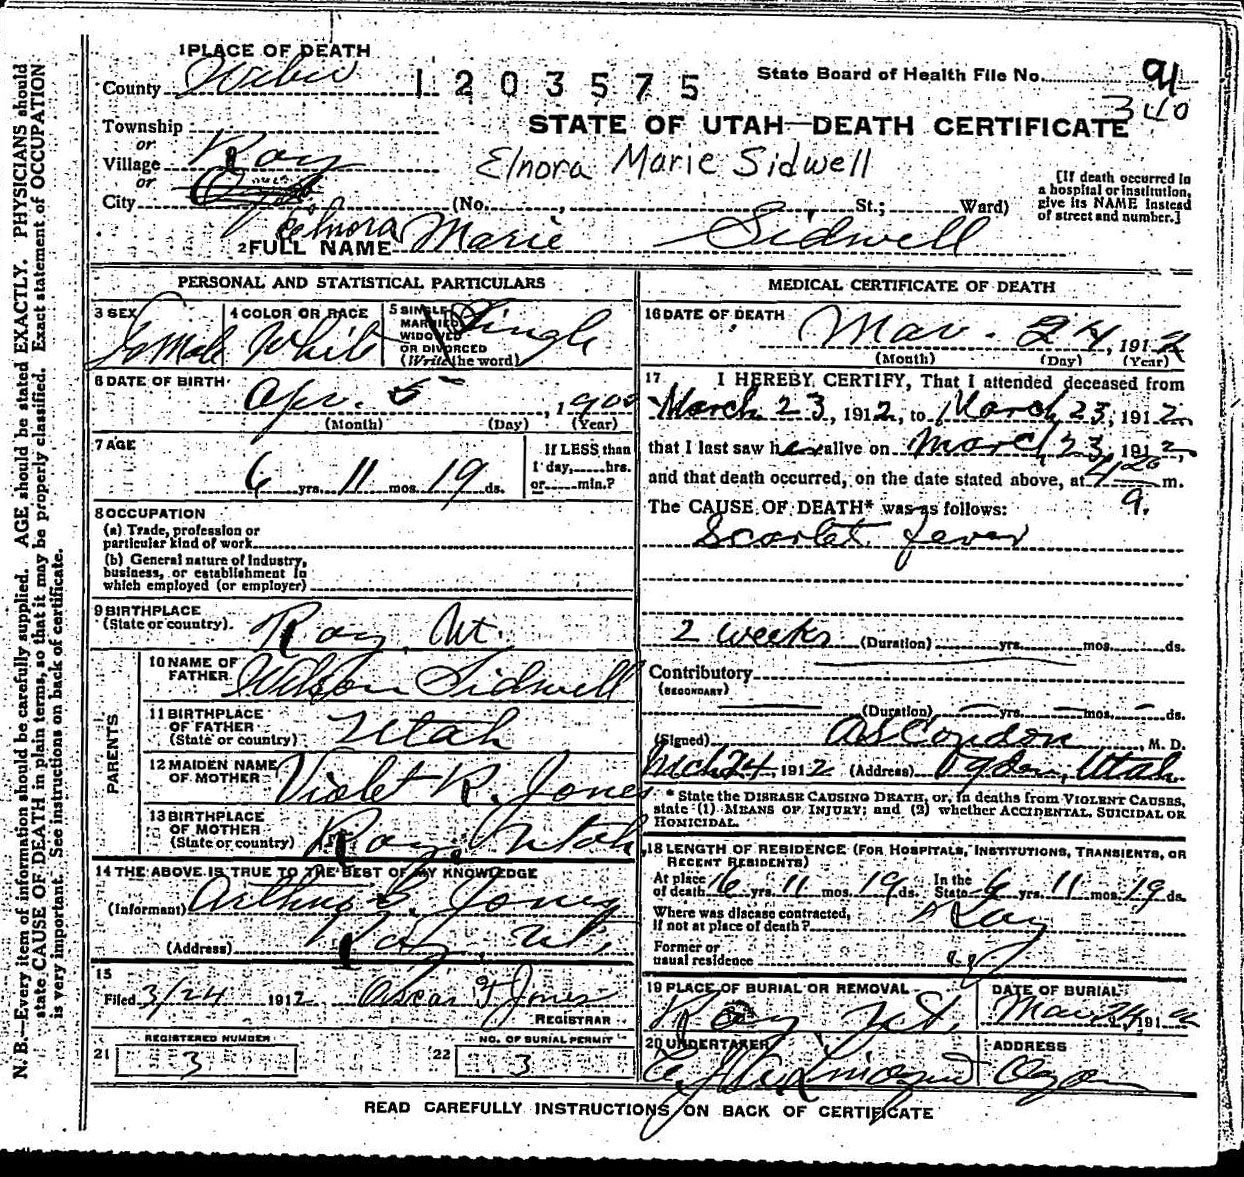 1 PLACE OF DEATH
County Weber
1203575
State Board of Health File No. 91
340
Township
or
Village Roy
or
City
STATE OF UTAH—DEATH CERTIFICATE
Elnora Marie Sidwell
(No. , St.; Ward)
[If death occurred in a hospital or institution, give its NAME instead of street and number.]
2 FULL NAME Elnora Marie Sidwell
PERSONAL AND STATISTICAL PARTICULARS
3 SEX Female
4 COLOR OR RACE White
5 SINGLE MARRIED WIDOWED OR DIVORCED (Write the word) Single
6 DATE OF BIRTH Apr. 5, 190
(Month) (Day) (Year)
7 AGE
6 yrs. 11 mos. 19 ds.
If LESS than 1 day, hrs. or min.?
8 OCCUPATION
(a) Trade, profession or particular kind of work
(b) General nature of Industry, business, or establishment in which employed (or employer)
9 BIRTHPLACE (State or country) Roy, Ut.
PARENTS
10 NAME OF FATHER Wilson Sidwell
11 BIRTHPLACE OF FATHER (State or country) Utah
12 MAIDEN NAME OF MOTHER Violet R. Jones
13 BIRTHPLACE OF MOTHER (State or country) Roy, Utah
14 THE ABOVE IS TRUE TO THE BEST OF MY KNOWLEDGE
(Informant) Jones
(Address) Roy, Ut.
15
Filed 3/24 1912 Oscar F Jones
REGISTRAR
REGISTERED NUMBER
21 3
NO. OF BURIAL PERMIT
22 3
MEDICAL CERTIFICATE OF DEATH
16 DATE OF DEATH Mar. 24, 1912
(Month) (Day) (Year)
17 I HEREBY CERTIFY, That I attended deceased from
March 23, 1912, to March 23, 1912,
that I last saw her alive on March 23, 1912,
and that death occurred, on the date stated above, at m.
The CAUSE OF DEATH* was as follows:
Scarlet fever
2 weeks (Duration) yrs. mos. ds.
Contributory
(SECONDARY)
(Duration) yrs. mos. ds.
(Signed) AS Condon, M. D.
Mch 24, 1912 (Address) Ogden, Utah.
* State the DISEASE CAUSING DEATH, or, in deaths from VIOLENT CAUSES, state (1) MEANS OF INJURY; and (2) whether ACCIDENTAL, SUICIDAL OR HOMICIDAL.
18 LENGTH OF RESIDENCE (FOR HOSPITALS, INSTITUTIONS, TRANSIENTS, OR RECENT RESIDENTS)
At place of death 6 yrs. 11 mos. 19 ds. In the State 6 yrs. 11 mos. 19 ds.
Where was disease contracted, if not at place of death? Roy
Former or usual residence
19 PLACE OF BURIAL OR REMOVAL Roy Ut.
DATE OF BURIAL Mar 24, 1912
20 UNDERTAKER
ADDRESS Ogden
READ CAREFULLY INSTRUCTIONS ON BACK OF CERTIFICATE
N. B.—Every item of information should be carefully supplied. AGE should be stated EXACTLY. PHYSICIANS should
state CAUSE OF DEATH in plain terms, so that it may be properly classified. Exact statement of OCCUPATION
is very important. See instructions on back of certificate.